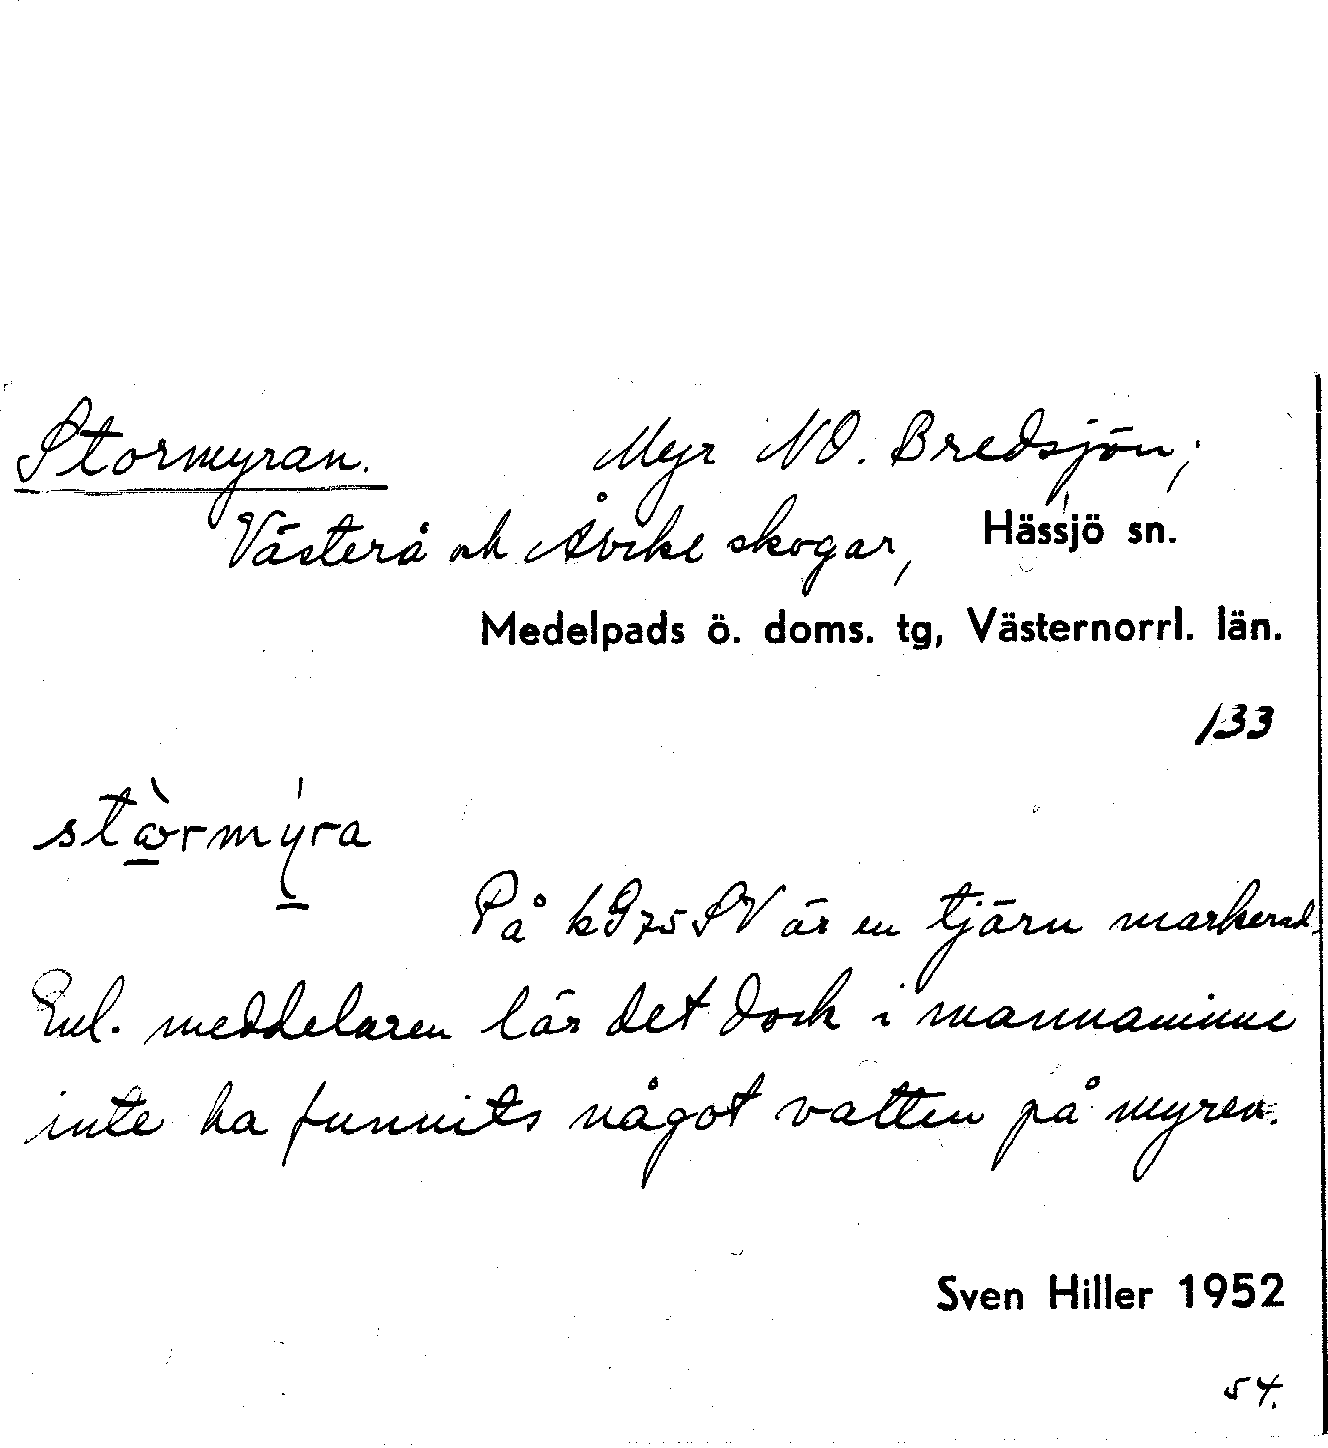 Stormyran. Myr NO. Bredsjön;
Västerå och Åvike skogar, Hässjö sn.
Medelpads ö. doms. tg, Västernorrl. län.
133
På kG75SV är en tjärn markerad.
Enl. meddelaren lär det dock i mannaminne
inte ha funnits något vatten på myren.
Sven Hiller 1952
54.